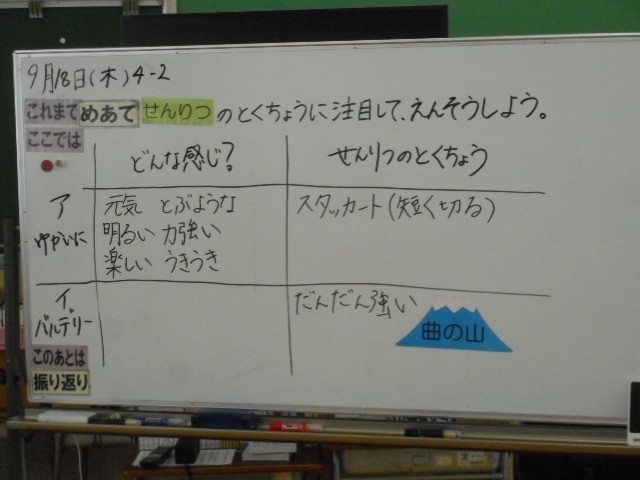 9月18日(木)4-2
これまで めあて せんりつ のとくちょうに注目して、えんそうしよう。
ここでは
どんな感じ? せんりつのとくちょう
ア 元気 とぶような スタッカート(短く切る)
ゆかいに 明るい 力強い
楽しい うきうき
イ だんだん強い
バルデリー 曲の山
このあとは
振り返り